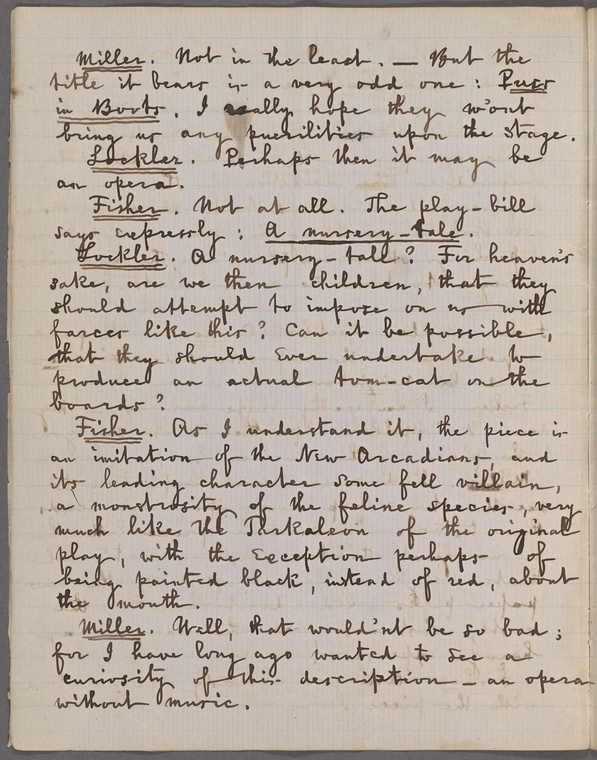 Miller. Not in the least. — But the
title it bears is a very odd one: Puss
in Boots. I really hope they wo'nt
bring us any puerilities upon the stage.
Lockler. Perhaps then it may be
an opera.
Fisher. Not at all. The play-bill
says expressly: A nursery-tale.
Lockler. A nursery-tall? For heaven's
sake, are we then children, that they
should attempt to impose on us with
farces like this? Can it be possible,
that they should ever undertake to
produce an actual tom-cat on the
boards?
Fisher. As I understand it, the piece is
an imitation of the New Arcadians, and
its leading character some fell villain,
a monstrosity of the feline species, very
much like the Tarkaleon of the original
play, with the exception perhaps of
being painted black, instead of red, about
the mouth.
Miller. Well, that would'nt be so bad;
for I have long ago wanted to see a
curiosity of this description — an opera
without music.